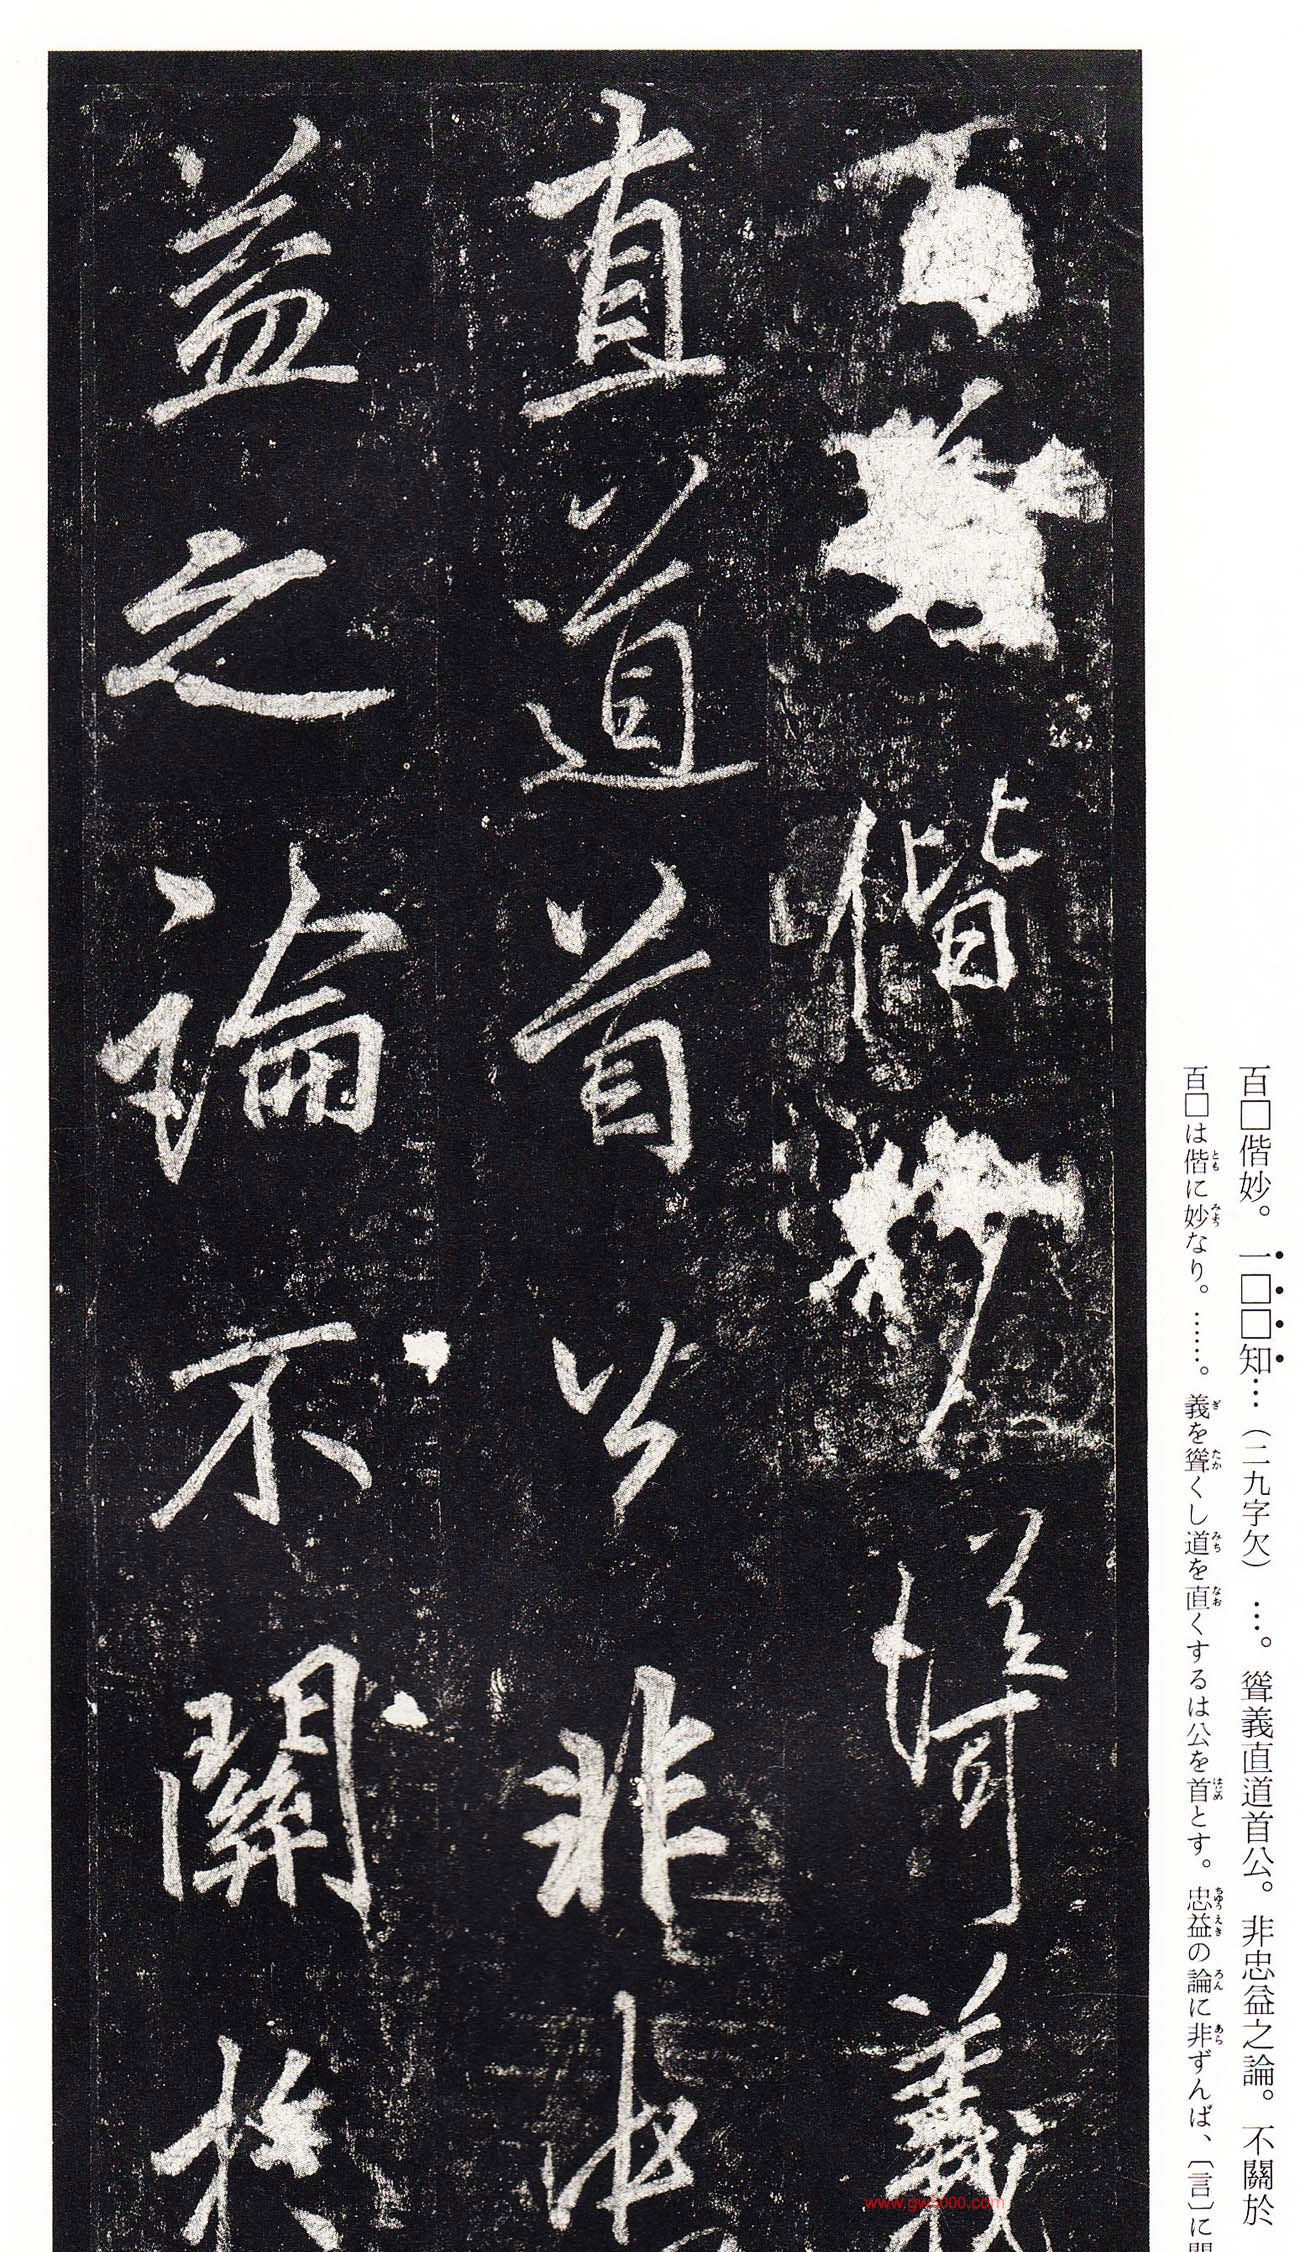 百□偕妙。一□□知…(二九字欠)…。聳義直道首公。非忠益之論。不關於
百□は偕に妙なり。……。義を聳くし道を直くするは公を首とす。忠益の論に非ずんば、〔言〕に関
百 偕妙聳義
直道首公非忠
益之論不關於
www.gw5000.com